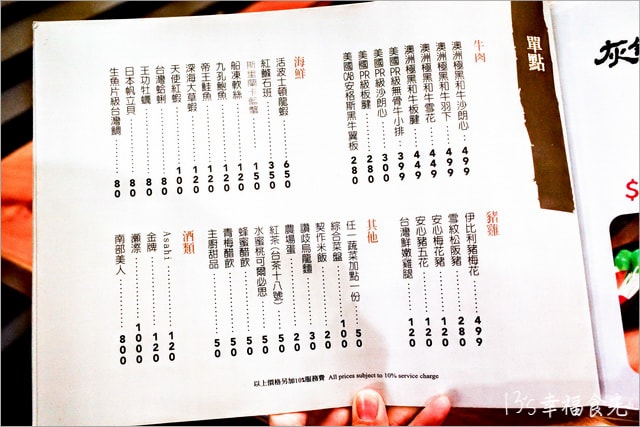 單點
牛肉
澳洲極黑和牛沙朗心 499
澳洲極黑和牛羽下 499
澳洲極黑和牛雪花 449
澳洲極黑和牛板腱 449
美國PR級無骨牛小排 399
美國PR級沙朗心 300
美國PR級板腱 280
美國CAB安格斯黑牛翼板 280
海鮮
活波士頓龍蝦 650
紅鰰石斑 350
斯里蘭卡藍蟹 150
船凍軟絲 120
九孔鮑魚 120
帝王鮭魚 120
深海大草蝦 120
天使紅蝦 100
台灣蛤蜊 80
王功牡蠣 80
日本帆立貝 80
生魚片級台灣鯛 80
豬雞
伊比利豬梅花 499
雪紋松阪豬 280
安心梅花豬 120
安心豬五花 120
台灣鮮嫩雞腿 120
其他
任一蔬菜加點一份 50
綜合菜盤 100
契作米飯 20
讚歧烏龍麵 30
農場蛋 20
紅茶(台茶十八號) 50
水蜜桃可爾必思 50
蜂蜜醋飲 50
青梅醋飲 50
主廚甜品 50
酒類
Asahi 120
金牌 120
瀨漂 1000
南部美人 800
以上價格另加10%服務費 All prices subject to 10% service charge
$
13's幸福食光